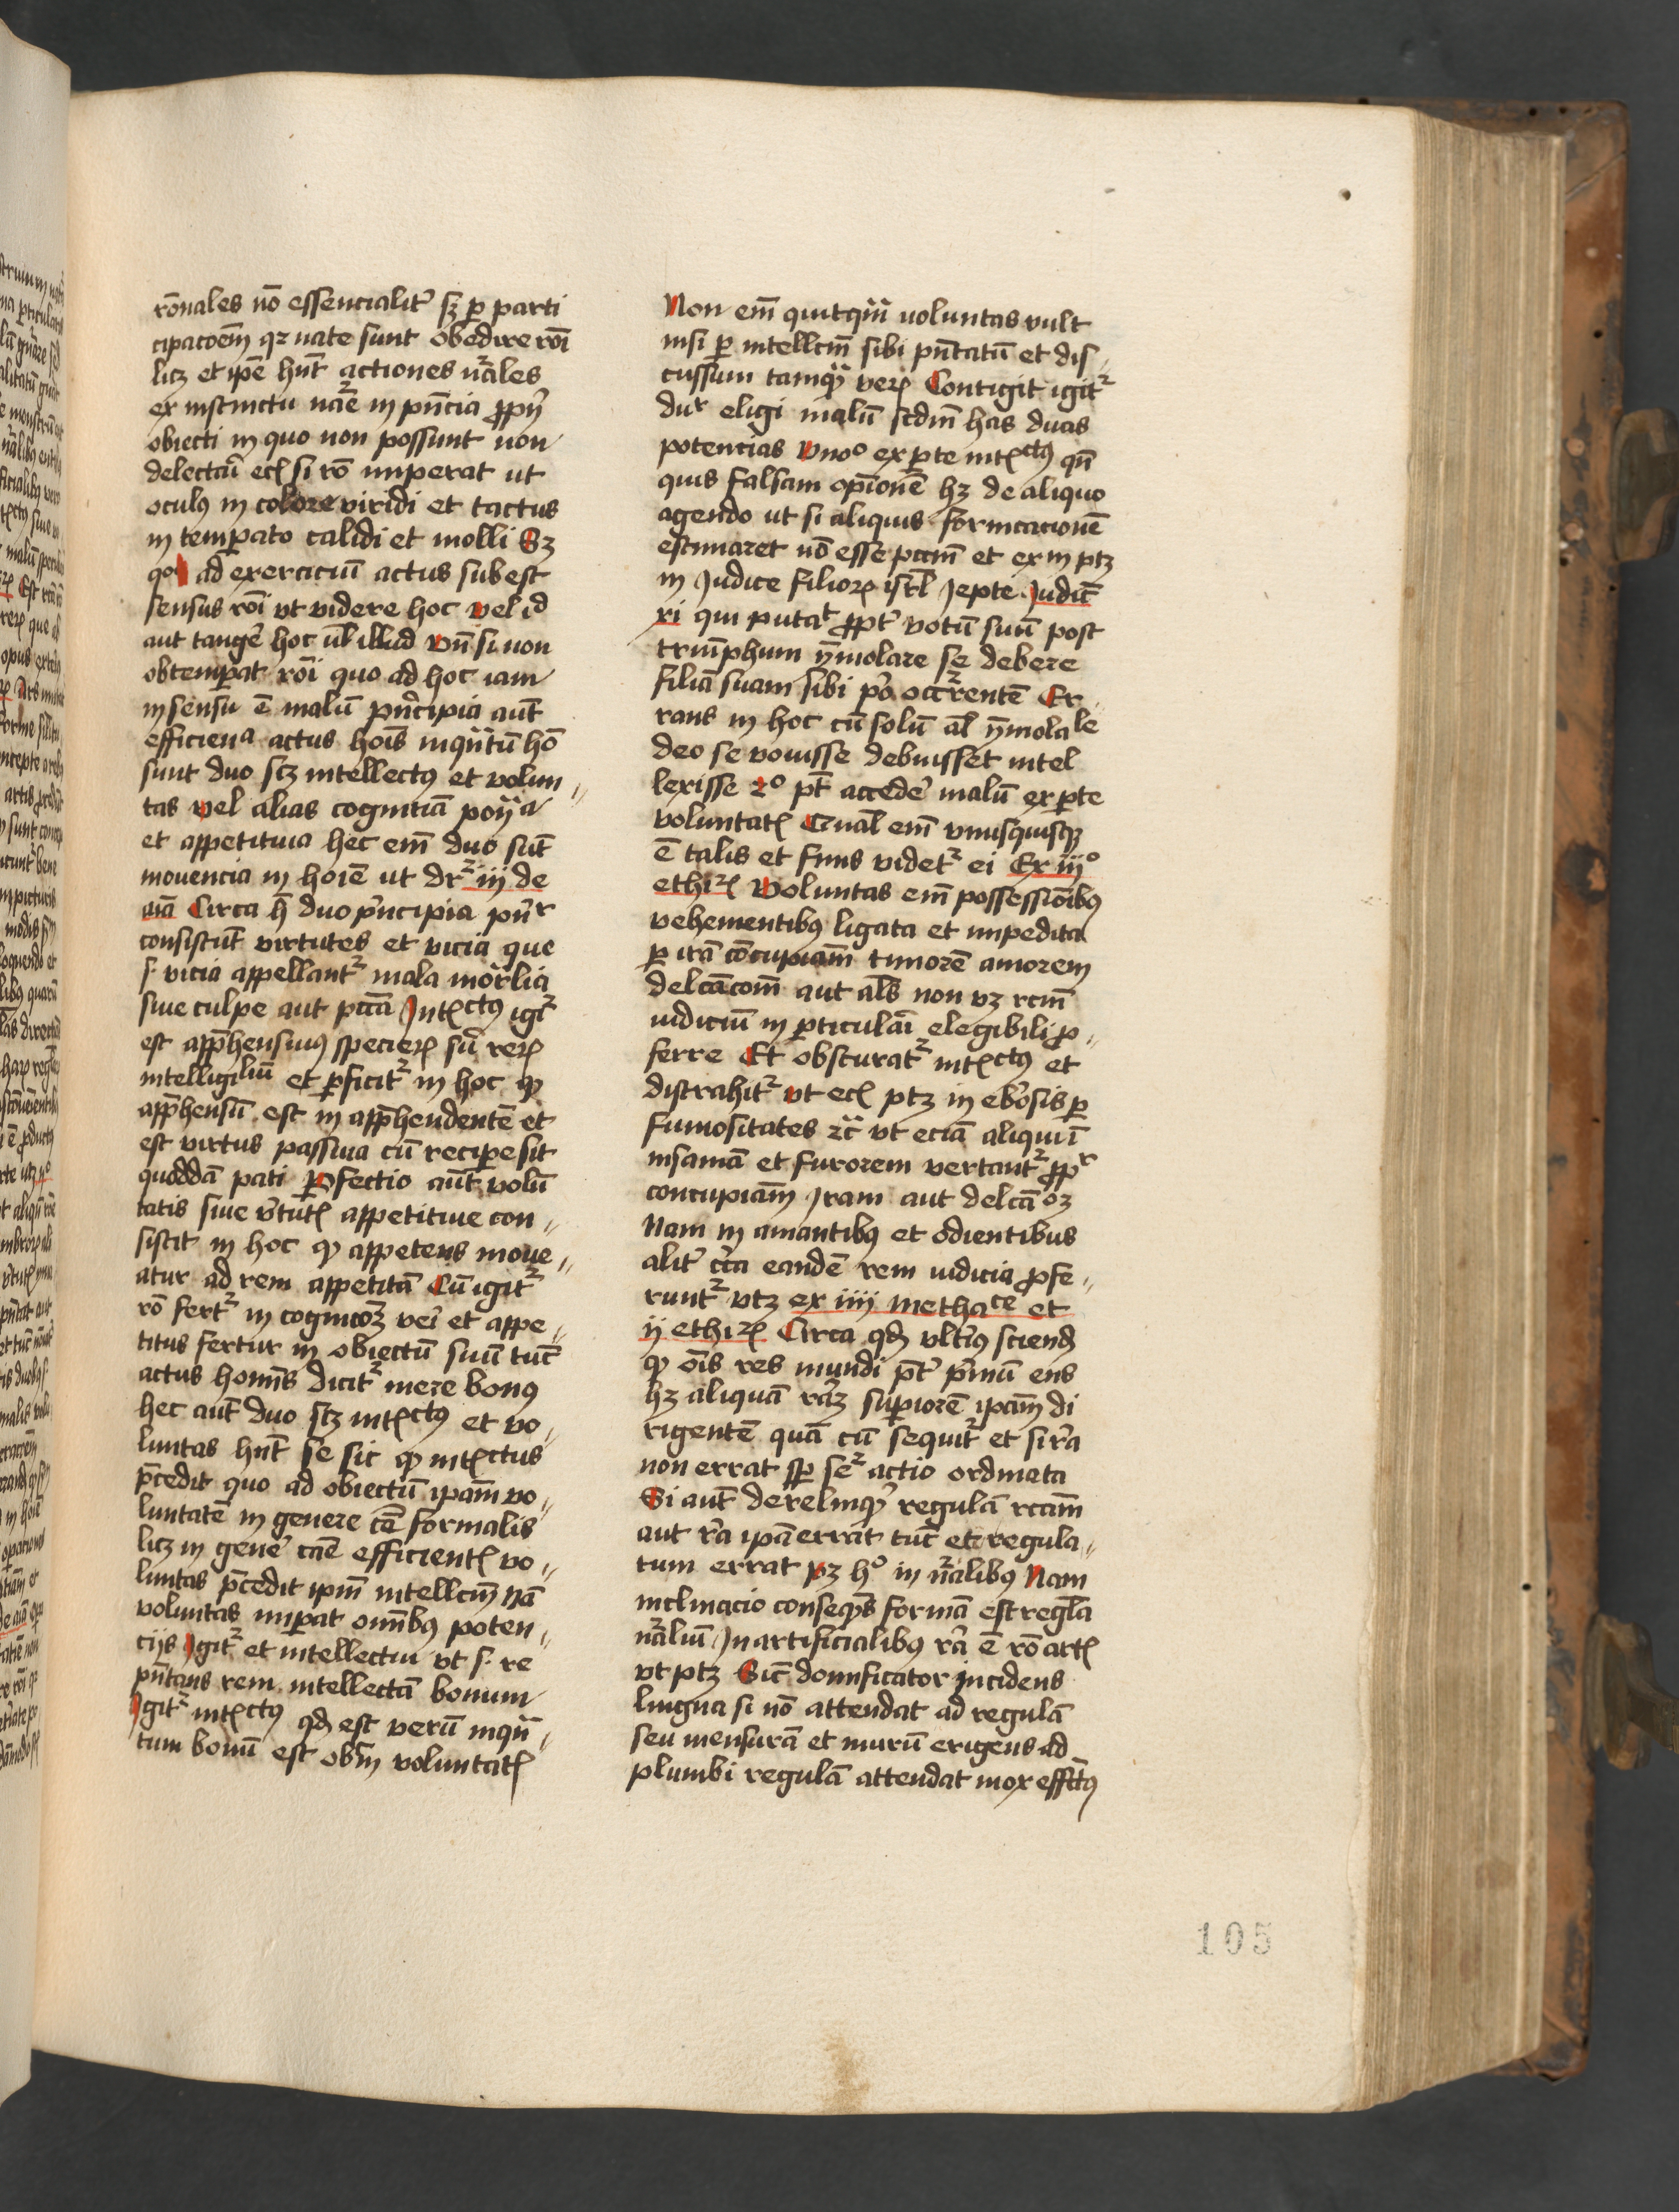 rōnales nō essencialit᷑ sꝫ ꝑ parti
cipacōem̄ qꝛ nate sunt obedire rōi
licꝫ et ip̄e hn̄t actiones nāles
ex instinctu nāe in pn̄cia ꝓpꝛij
obiecti in quo non possunt non
delectari eciam si rō imperat ut
oculꝰ in colore viridi et tactus
in temꝑato calidi et molli Sꝫ
qͦ ad exerciciū actus subest
sensus rōi vt videre hoc vel id
aut tangē hoc ul̄ illud vn̄ si non
obtemꝑat rōi quo ad hoc iam
in sensu ē malū pn̄cipia aūt
efficiena actus hoīs inqn̄tū hō
sunt duo scꝫ intellectꝰ et volun
tas vel alias cognitiā
et appetitiua hec em̄ duo sūt
mouencia in hoīe ut dr̄ iij de
aīa Circa h̄ duo pͥncipia
consistūt virtutes et vicia que
s. vicia appellantᷣ mala moralia
siue culpe aut pccā Intꝉctꝰ igiᷣ
est appͣhensiuꝰ specieꝝ suꝝ reꝝ
intelligiliū et ꝑficitᷣ in hoc ꝙ
appͣhensū est in appͣhendentē et
est virtus passiua cū reciꝑe sit
quoddā pati Ꝑfectio aūt volū
tatis siue vͥtutꝭ appetitiue con
sistit in hoc ꝙ appetens moue
atur ad rem appetitā Cū igitᷣ
rō fertᷣ in cognicōꝫ veri et appe
titus fertur in obiectū suū tūc
actus hoīns dicitᷣ mere bonꝰ
hec aūt duo scꝫ intꝉctꝰ et vo
luntas hn̄t se sic ꝙ intꝉctus
pͣcedit quo ad obiectū ipam̄ vo
luntatē in genere cāe formalis
licꝫ in genē cāe efficientꝭ vo
luntas pͣcedit ipm̄ intellcm̄ Nā
voluntas imꝑat omībꝰ poten
cijs Igitᷣ et intellectui vt s. re
pn̄tans rem intellectā bonum
Igitᷣ intꝉctꝰ qđ est verū inqn̄
tum bonū est obm̄ voluntatꝭ
Non em̄ quitqm̄ uoluntas vult
nisi ꝑ intellcm̄ sibi pn̄tatū et dis
cussum tamqͣ veꝝ Contigit igitᷣ
duʳ eligi malū scdm̄ has duas
potencias Vnoͦ ex ꝑte intꝉctꝰ qn̄
quis falsam opīonē hꝫ de aliquo
agendo ut si aliquis fornicacionē
estimaret nō esse pccm̄ et ex in ptꝫ
in Iudice filioꝝ isrl̄ Iepte Iudic̄
xi qui putat ꝓpt᷑ votū suū post
triūphum ymolare se debere
filiā suam sibi pͦ occͬrentē Er
rans in hoc cū solū al̄ ymolale
deo se vouisse debuisset intel
lexisse 2ͦ pt̄ accedē malū ex ꝑte
voluntatꝭ Qual̄ em̄ vnusquisqꝫ
ē talis et finis videtᷣ ei Ex iijͦ
ethiꝝ Voluntas em̄ possessiōibꝰ
vehementibꝰ ligata et impedita
ꝑ irā cōcupiam̄ timorē amorem
delcācom̄ aut al̄s non vꝫ rcm̄
iudiciū in ꝑticulāi elegibili ꝓ
ferre Et obscuratᷣ intꝉctꝰ et
distrahitᷣ vt ecꝭ ptꝫ in ebͥosis ꝑ
fumositates ⁊c̄ vt eciā aliqui ī
insaniā et furorem vertantᷣ ꝓpʳ
concupiam̄ Iram aut delcāoꝫ
Nam in amantibꝰ et odientibus
alit᷑ cͥca eandē rem iudicia ꝓfe
runtᷣ vtꝫ ex iiij methace et
ij ethiꝝ Circa qđ vltͥiꝰ sciendꝭ
ꝙ oīs res mundi pͣt᷑ pͥmū ens
hꝫ aliquā rāꝫ suꝑiorē ipam̄ di
rigentē quā cū sequitᷣ et si rͣa
non errat sꝑ seᷣ actio ordinata
Si aūt derelinqͥᷣ regulā rcam̄
aut rͣa ipā errat tūc et regula
tum errat Pꝫ hͦ in nālibꝰ Nam
inclinacio conseqn̄s formā est regl̄a
nāliū In artificialibꝰ rͣa ē rō artꝭ
vt ptꝫ Sic domficator incidens
lingna si nō attendat ad regulā
seu mensurā et murū erigens ad
plumbi regulā attendat mox effctꝰ
105